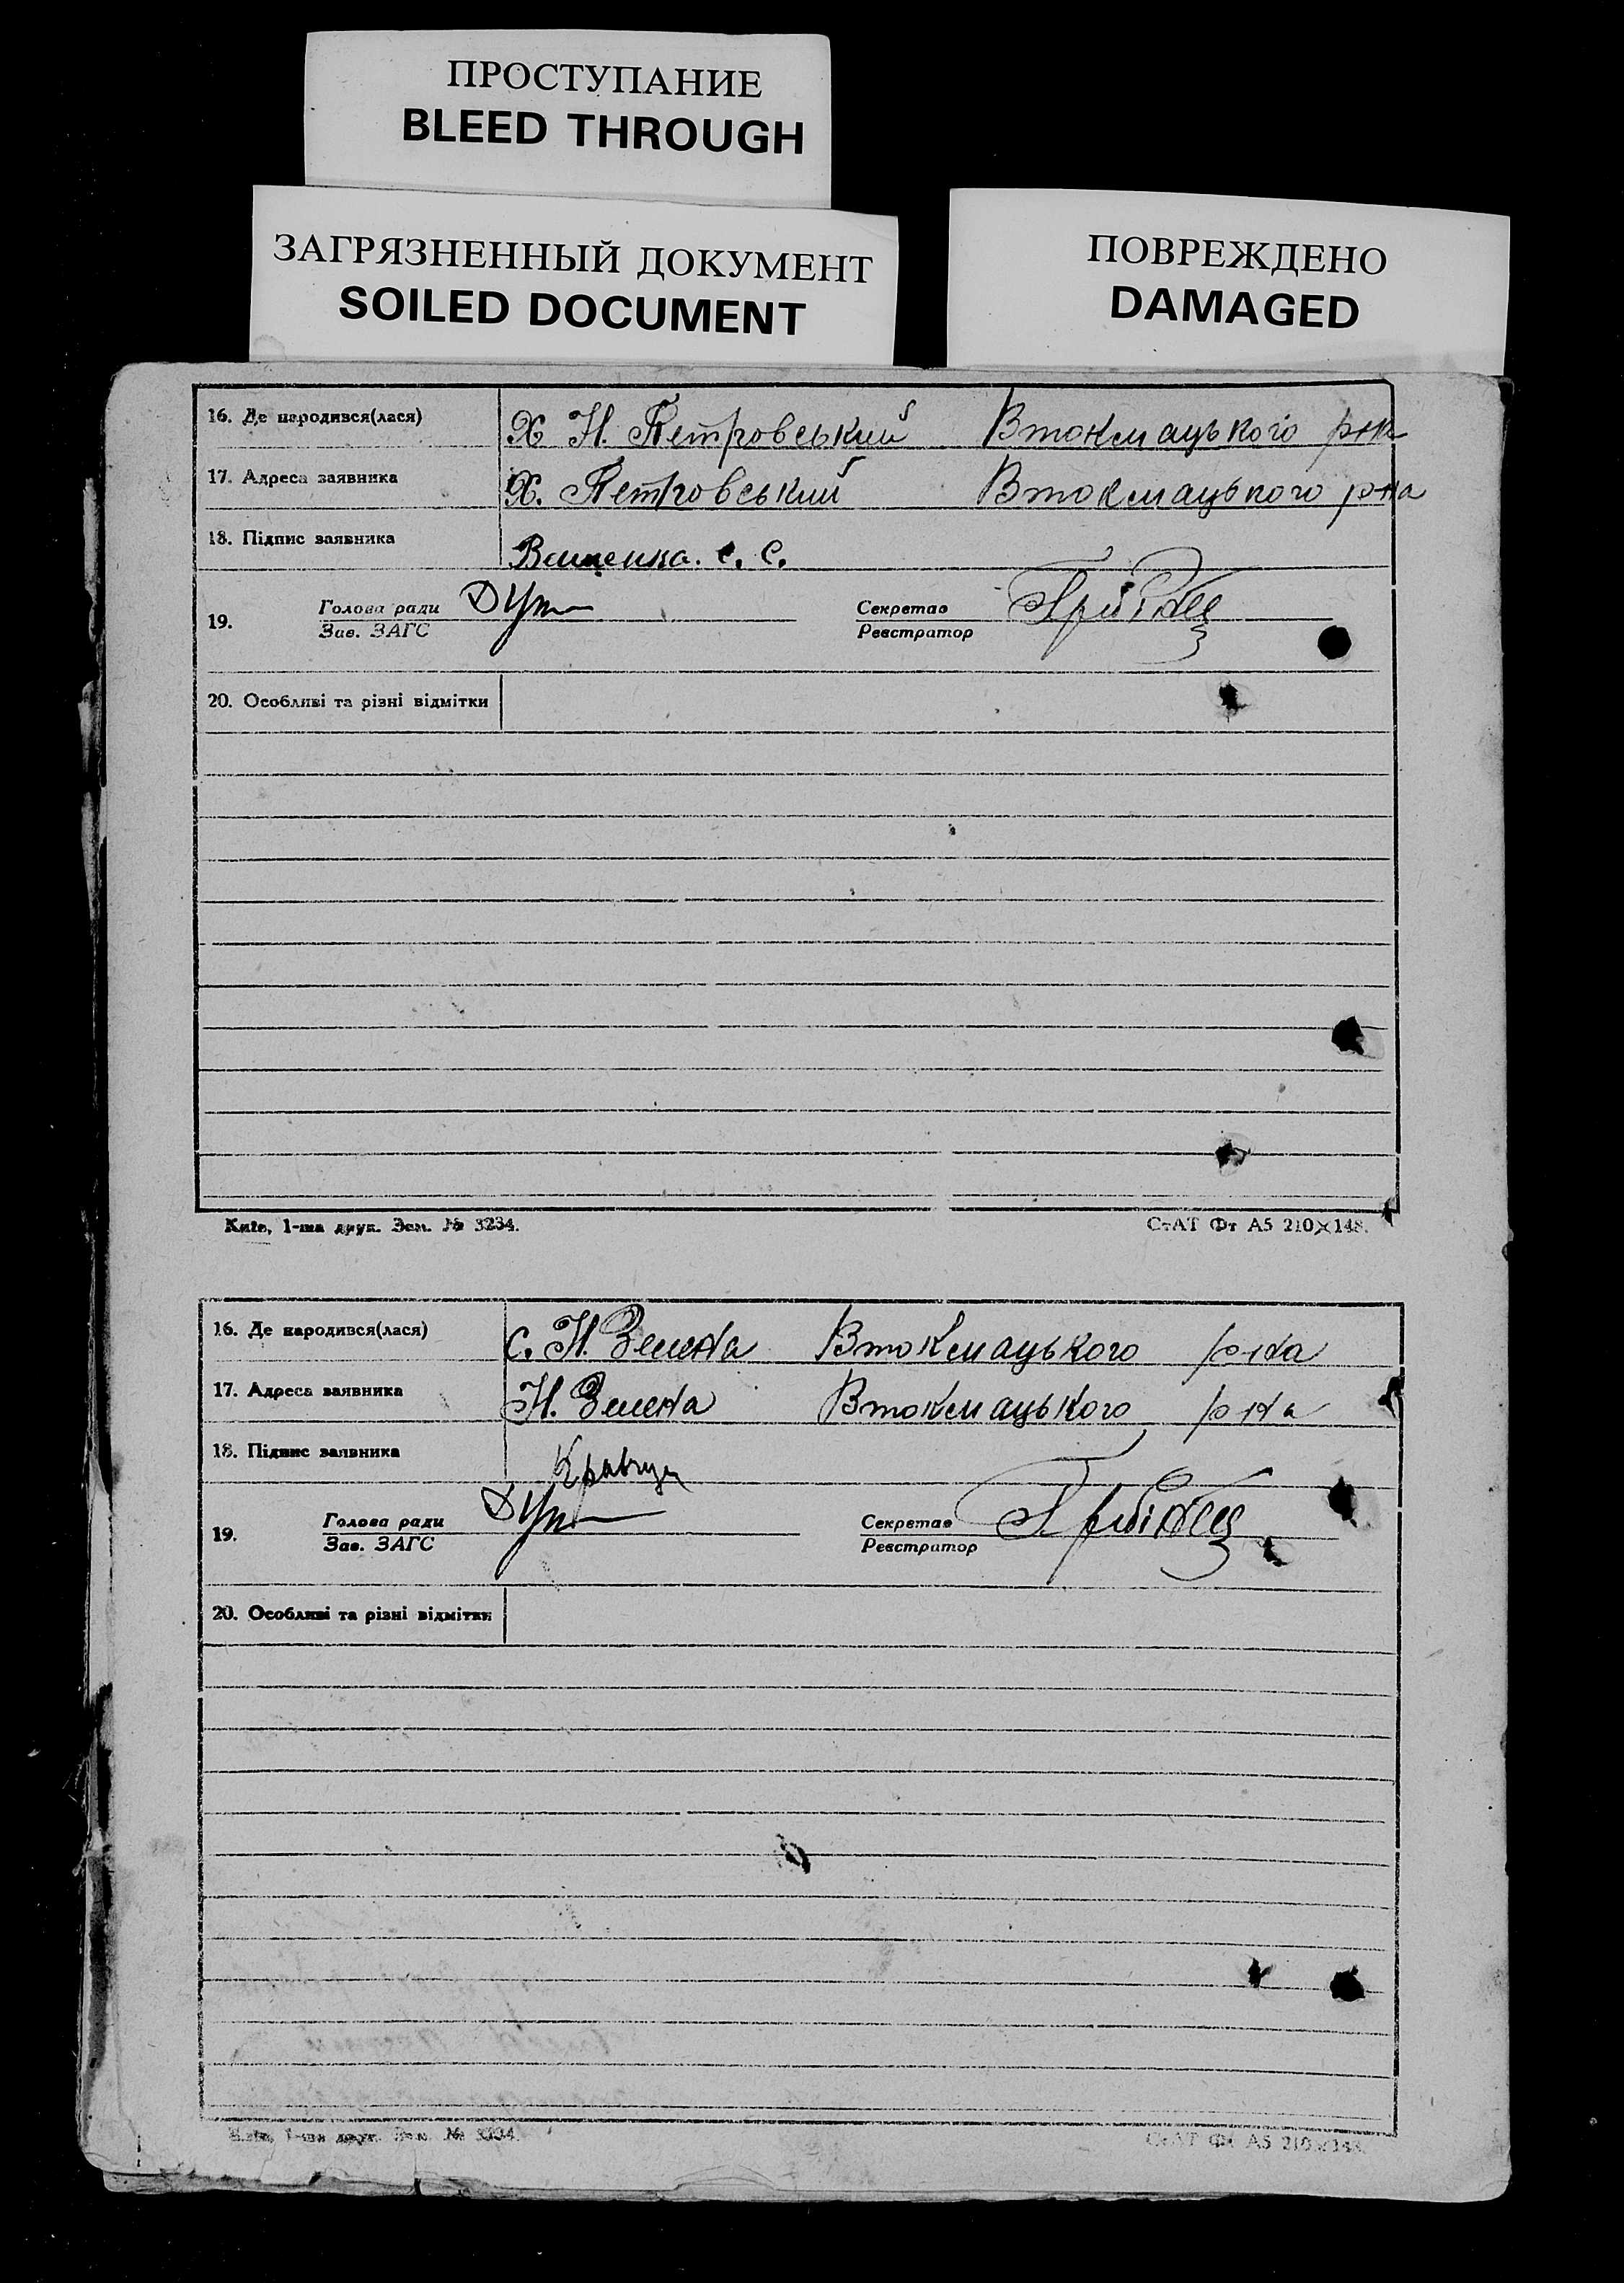 ПРОСТУПАНИЕ
BLEED THROUGH
ЗАГРЯЗНЕННЫЙ ДОКУМЕНТ
SOILED DOCUMENT
ПОВРЕЖДЕНО
DAMAGED
16. Де народився(лася) Х Н. Петровський Втокмацького р-на
17. Адреса заявника Х. Петровський Втокмацького р-на
18. Підпис заявника Ващенка. С. С.
19. Голова ради Секретар
Зав. ЗАГС Реєстратор
20. Особливі та різні відмітки
Київ, 1-ша друк. Зам. № 3234. СтАТ Фт А5 210×148.
16. Де народився(лася) с. Н. Зелена Втокмацького р-на
17. Адреса заявника Н. Зелена Втокмацького р-на
18. Підпис заявника Кравчук
19. Голова ради Секретар
Зав. ЗАГС Реєстратор
20. Особливі та різні відмітки
Київ, 1-ша друк. Зам. № 3234. СтАТ Фт А5 210×148.